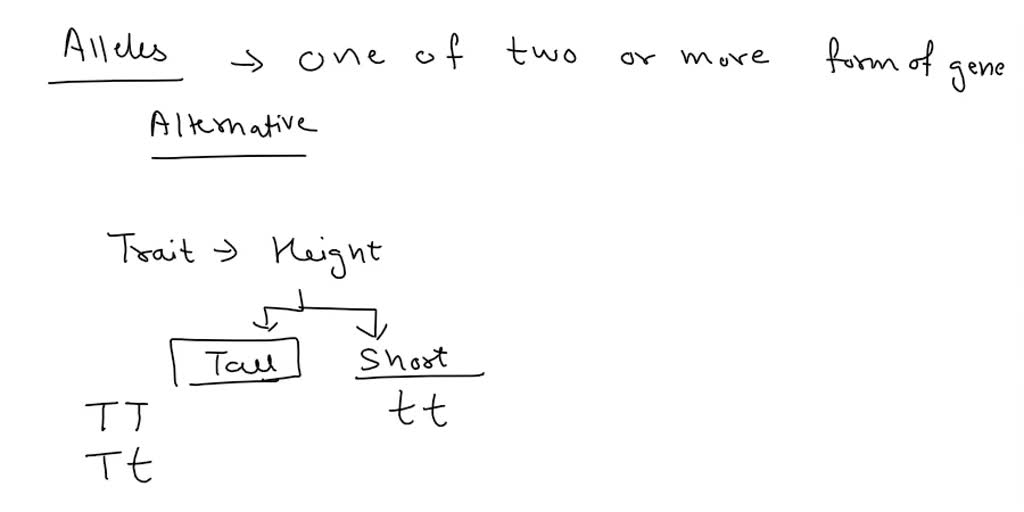 Alleles → one of two or more form of gene
Alternative
Trait → Height
Tall Short
TT tt
Tt